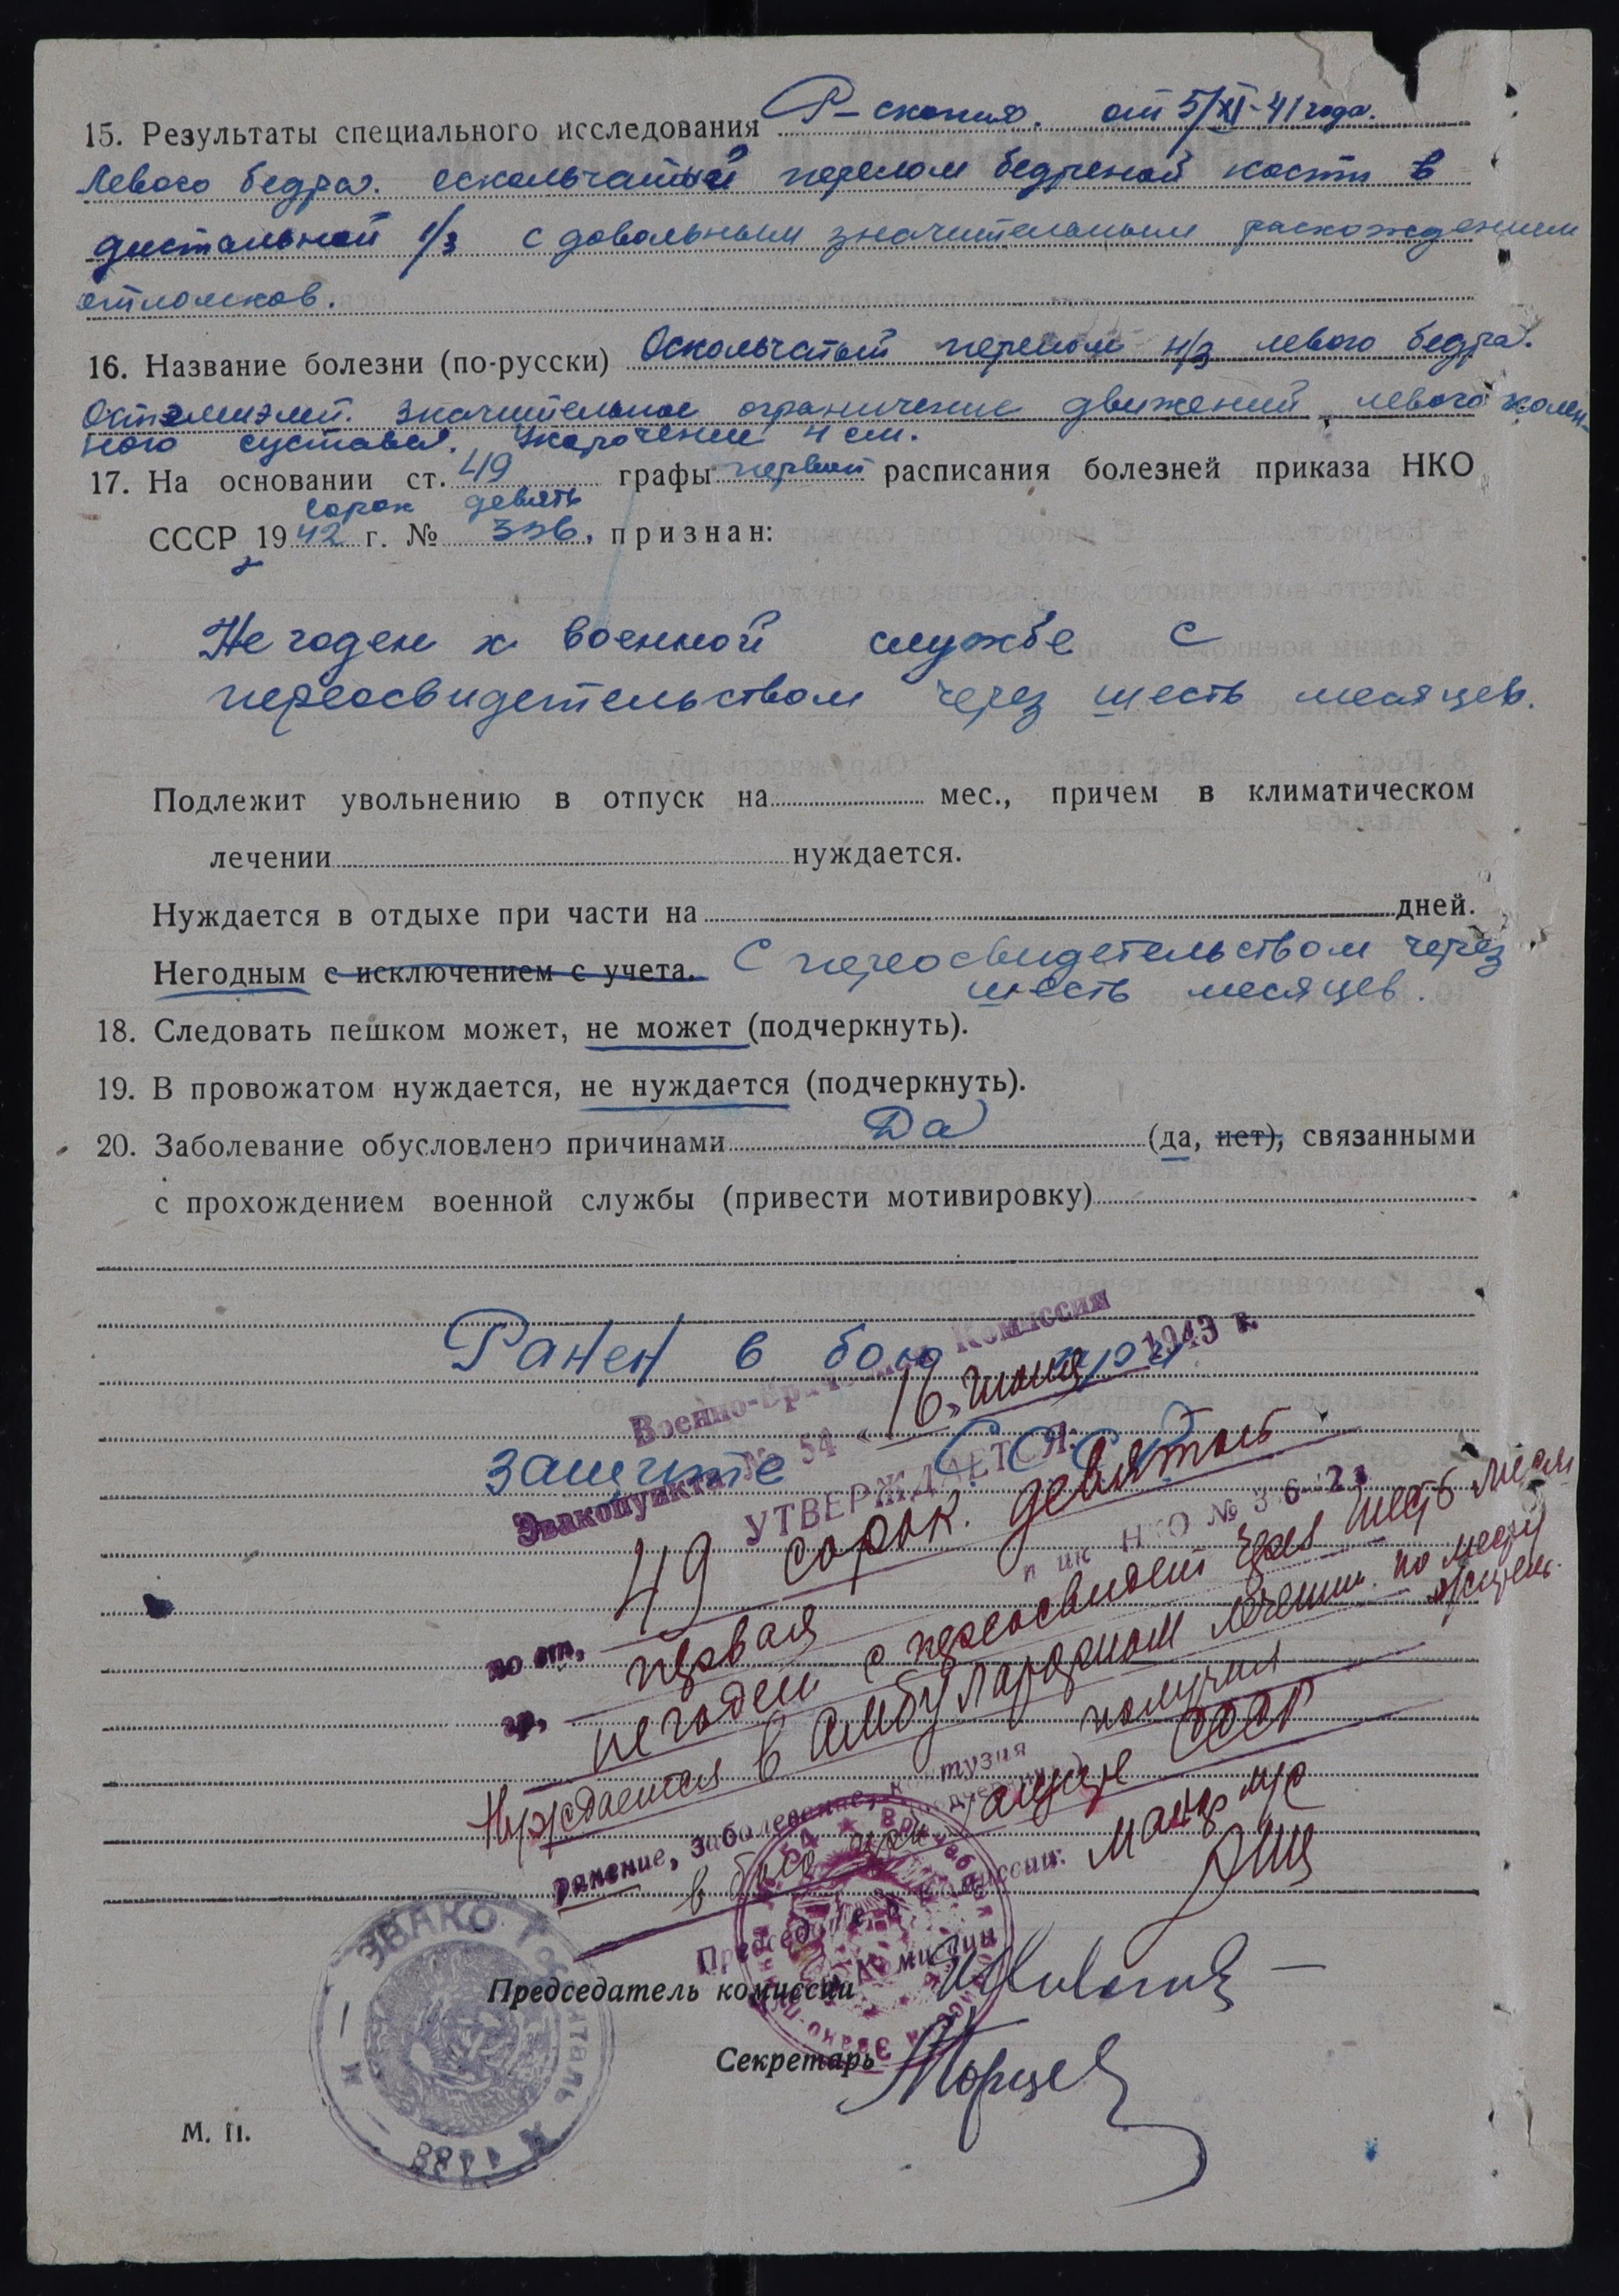 15. Результаты специального исследования Р-скопия. от 5/XI-41 года.
Левого бедра. оскольчатый перелом бедреной кости в
дистальной 1/3 с довольным значительным расхождением
отломков.
16. Название болезни (по-русски) Оскольчатый перелом н/з левого бедра.
значительное ограничение движений левого колен-
ного сустава. Укорочение 4 см.
17. На основании ст. 49 графы первой расписания болезней приказа НКО
сорок девять
СССР 1942 г. № 336, признан:
Не годен к военной службе с
переосвидетельством через шесть месяцев.
Подлежит увольнению в отпуск на мес., причем в климатическом
лечении нуждается.
Нуждается в отдыхе при части на дней.
Негодным с исключением с учета. С переосвидетельством через
шесть месяцев.
18. Следовать пешком может, не может (подчеркнуть).
19. В провожатом нуждается, не нуждается (подчеркнуть).
20. Заболевание обусловлено причинами Да (да, нет), связанными
с прохождением военной службы (привести мотивировку)
Ранен в бою при
защите СССР
Военно-Врачебная Комиссия
Эвакопункта № 54 «16» июня 1943 г.
УТВЕРЖДАЕТСЯ:
по ст. 49 сорок девятой
НКО №
гр. первая
не годен с переосвидет через шесть месяц
Нуждается в амбулаторном лечении по месту
жительс.
ранение, заболевание, контузия получил
в бою при защите СССР
Председатель Комиссии:
Председатель комиссии
Секретарь
М. П.
ЭВАКО ГОСПИТАЛЬ